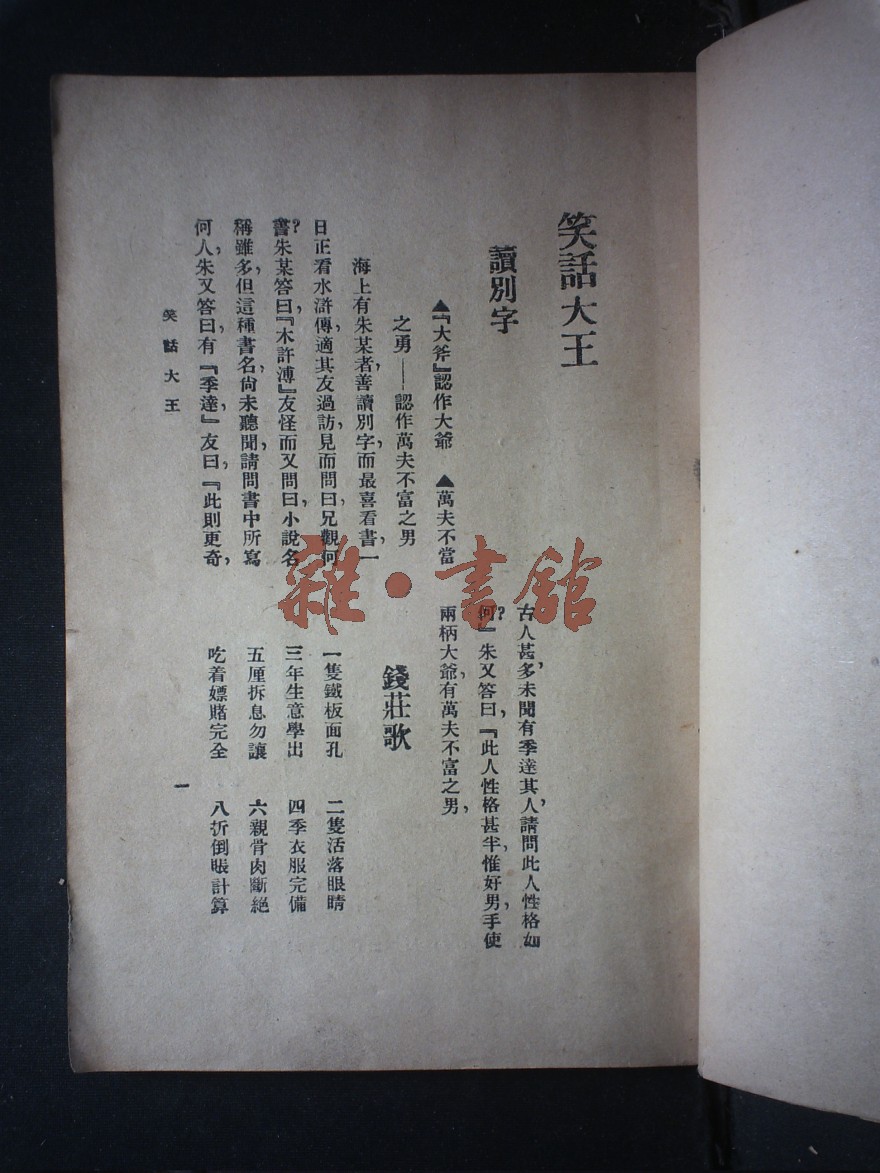 笑話大王
讀別字
▲『大斧』認作大爺　▲萬夫不當
之勇——認作萬夫不富之男
海上有朱某者，善讀別字，而最喜看書，一
日正看水滸傳，適其友過訪，見而問曰，兄觀何
書？朱某答曰，『木許溥』友怪而又問曰，小說名
稱雖多，但這種書名，尙未聽聞，請問書中所寫
何人，朱又答曰，有『季達，』友曰，『此則更奇，
古人甚多，未聞有季達其人，請問此人性格如
何？』朱又答曰，『此人性格甚半，惟好男，手使
兩柄大爺，有萬夫不富之男，
錢莊歌
一隻鐵板面孔　二隻活落眼睛
三年生意學出　四季衣服完備
五厘拆息勿讓　六親骨肉斷絕
吃着嫖賭完全　八折倒賬計算
笑話大王
一
雜·書館